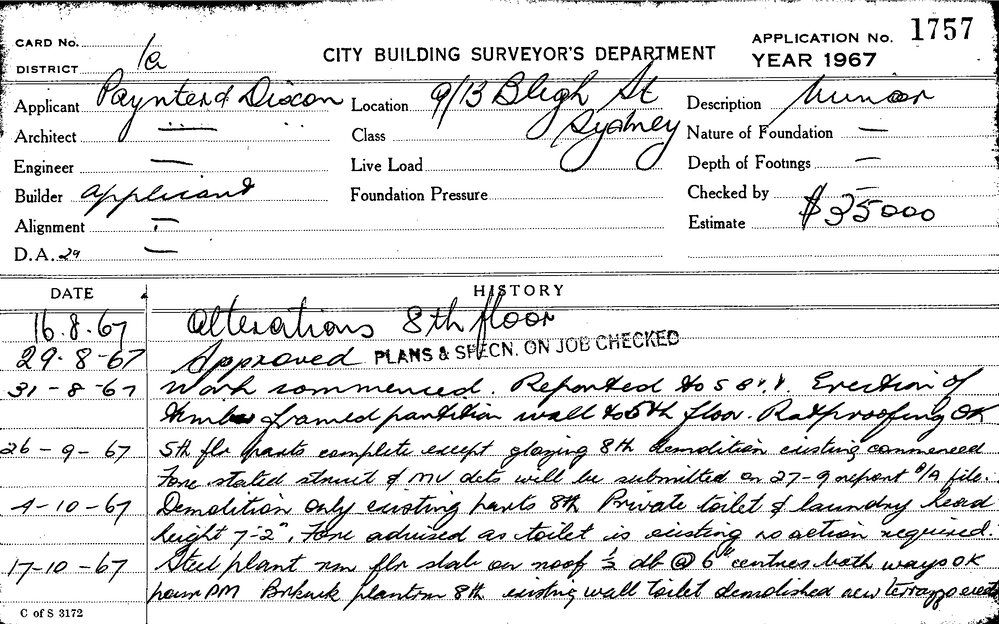 CARD No. 1a
CITY BUILDING SURVEYOR'S DEPARTMENT
APPLICATION No. 1757
DISTRICT
YEAR 1967
Applicant Paynter & Dixon
Location 9/13 Bligh St
Sydney
Description
Architect —
Class
Nature of Foundation —
Engineer —
Live Load
Depth of Footings —
Builder Applicant
Foundation Pressure
Checked by —
Alignment —
Estimate $35000
D.A. 29 —
DATE
HISTORY
16.8.67 Alterations 8th floor
29.8-67 Approved PLANS & SPECN. ON JOB CHECKED
31-8-67 Work commenced. Reported to Erection of
timber framed partition wall to 5th floor. Ratproofing OK
26-9-67 5th flr parts complete except glazing 8th demolition existing commenced
Fore stated struct & MV dets will be submitted on 27-9 report file.
4-10-67 Demolition only existing parts 8th Private toilet & laundry head
height 7'-2". Fore advised as toilet is existing no action required.
17-10-67 Steel plant rm flr slab on roof ½ db @ 6" centres both ways OK
pour PM 8th existing wall toilet demolished new terrazzo
C of S 3172